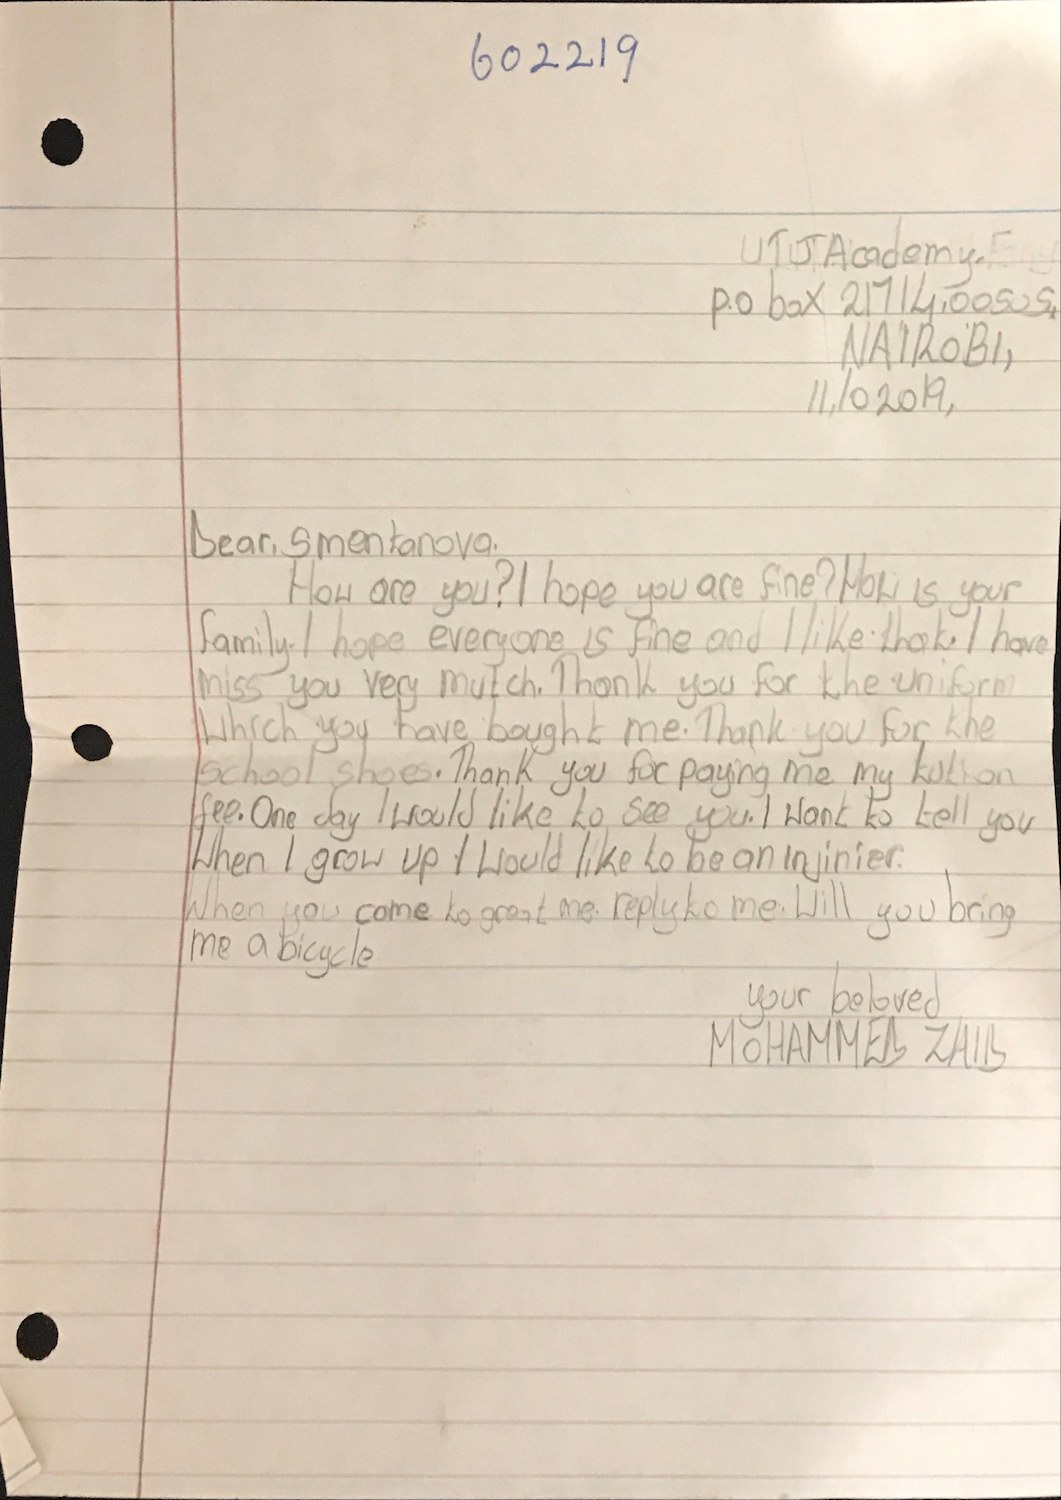 602219
UTJ Academy.
P.o box 21714,00505,
NAIROBI,
11,10 2019,
Dear, Smentanova.
How are you? I hope you are fine? How is your
family. I hope everyone is fine and I like that. I have
miss you very mutch. Thank you for the uniform
which you have bought me. Thank you for the
school shoes. Thank you for paying me my
fee. One day I would like to see you. I want to tell you
When I grow up I would like to be an injinier.
When you come to great me. reply to me. Will you bring
me a bicycle
your beloved
MOHAMMED ZAID